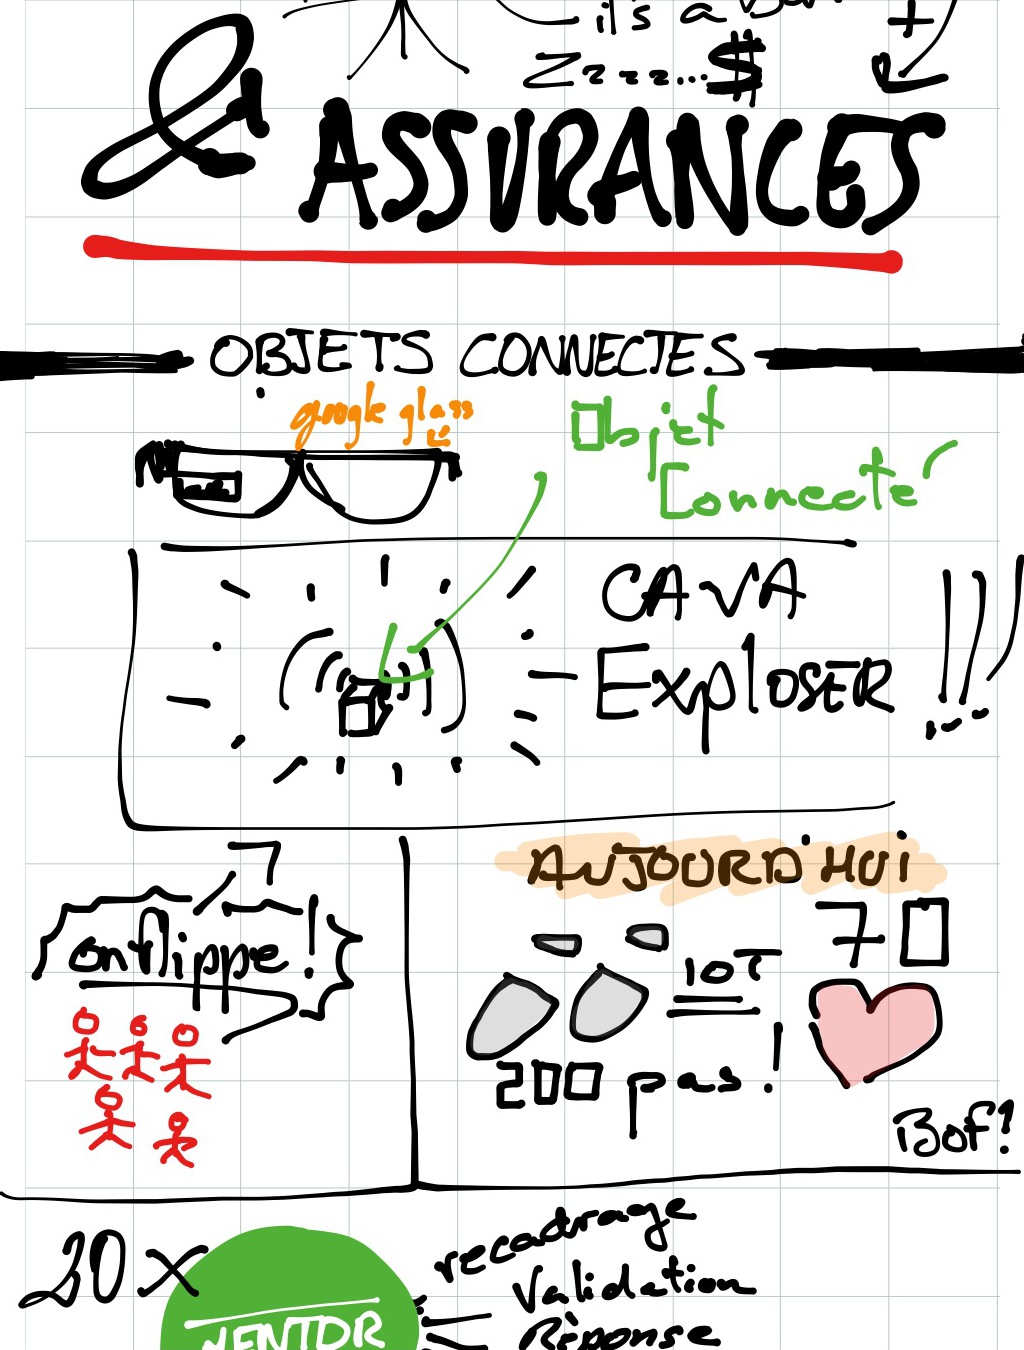 it's a
Zzzzz...$
& ASSURANCES
OBJETS CONNECTES
google glass
Objet
Connecté
CA VA
Exploser !!!
on flippe !
AUJOURD'HUI
IOT
70
200 pas !
Bof !
20 x
MENTOR
recadrage
Validation
Réponse